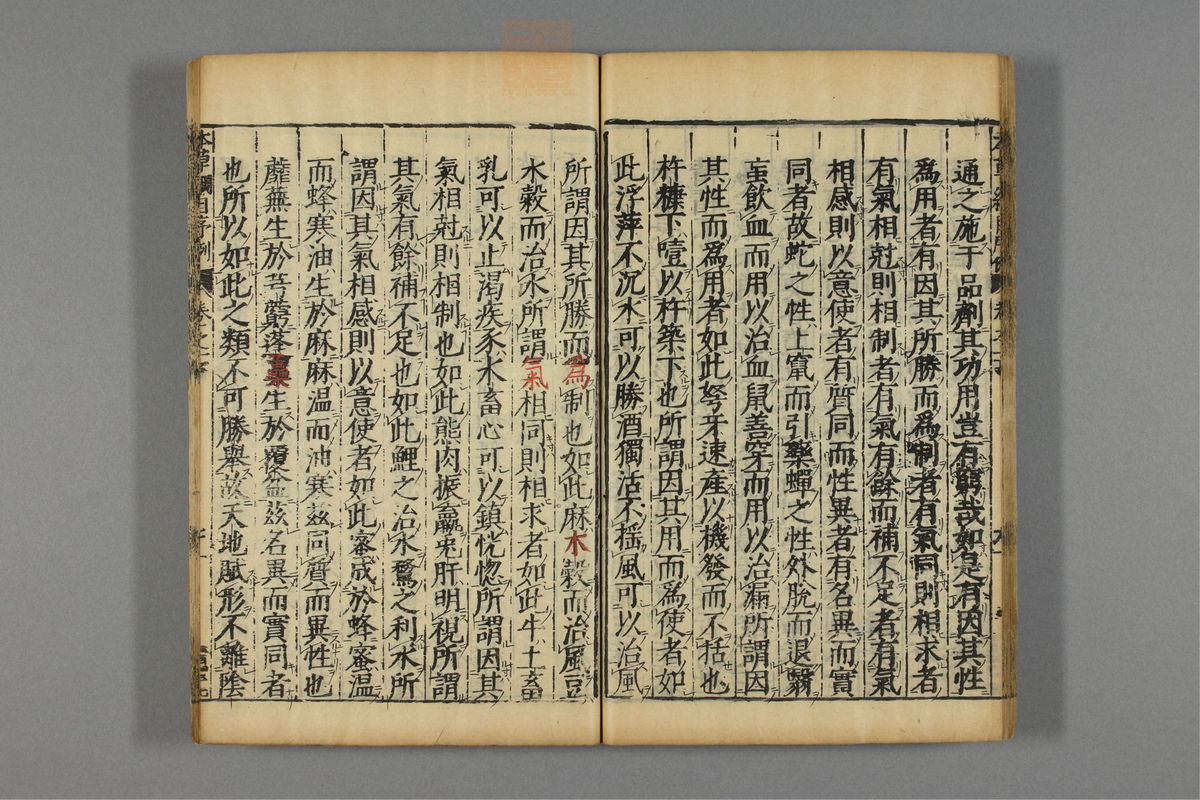 通之施于品劑其功用豈有窮哉如是有因其性
爲用者有因其所勝而爲制者有氣同則相求者
有氣相尅則相制者有氣有餘而補不足者有氣
相感則以意使者有質同而性異者有名異而實
同者故蛇之性上竄而引藥蟬之性外脫而退翳
虻飲血而用以治血鼠善穿而用以治漏所謂因
其性而爲用者如此弩牙速産以機發而不括也
杵糠下噎以杵築下也所謂因其用而爲使者如
此浮萍不沉水可以勝酒獨活不揺風可以治風
所謂因其所勝而爲制也如此麻木穀而治風豆
水穀而治水所謂氣相同則相求者如此牛土畜
乳可以止渴疾豕水畜心可以鎮恍惚所謂因其
氣相尅則相制也如此熊肉振羸兎肝明視所謂
其氣有餘補不足也如此鯉之治水鶩之利水所
謂因其氣相感則以意使者如此蜜成於蜂蜜温
而蜂寒油生於麻麻温而油寒茲同質而異性也
蘼蕪生於芎藭蓬蘽生於覆盆茲名異而實同者
也所以如此之類不可勝舉故天地賦形不離陰
本草綱目序例